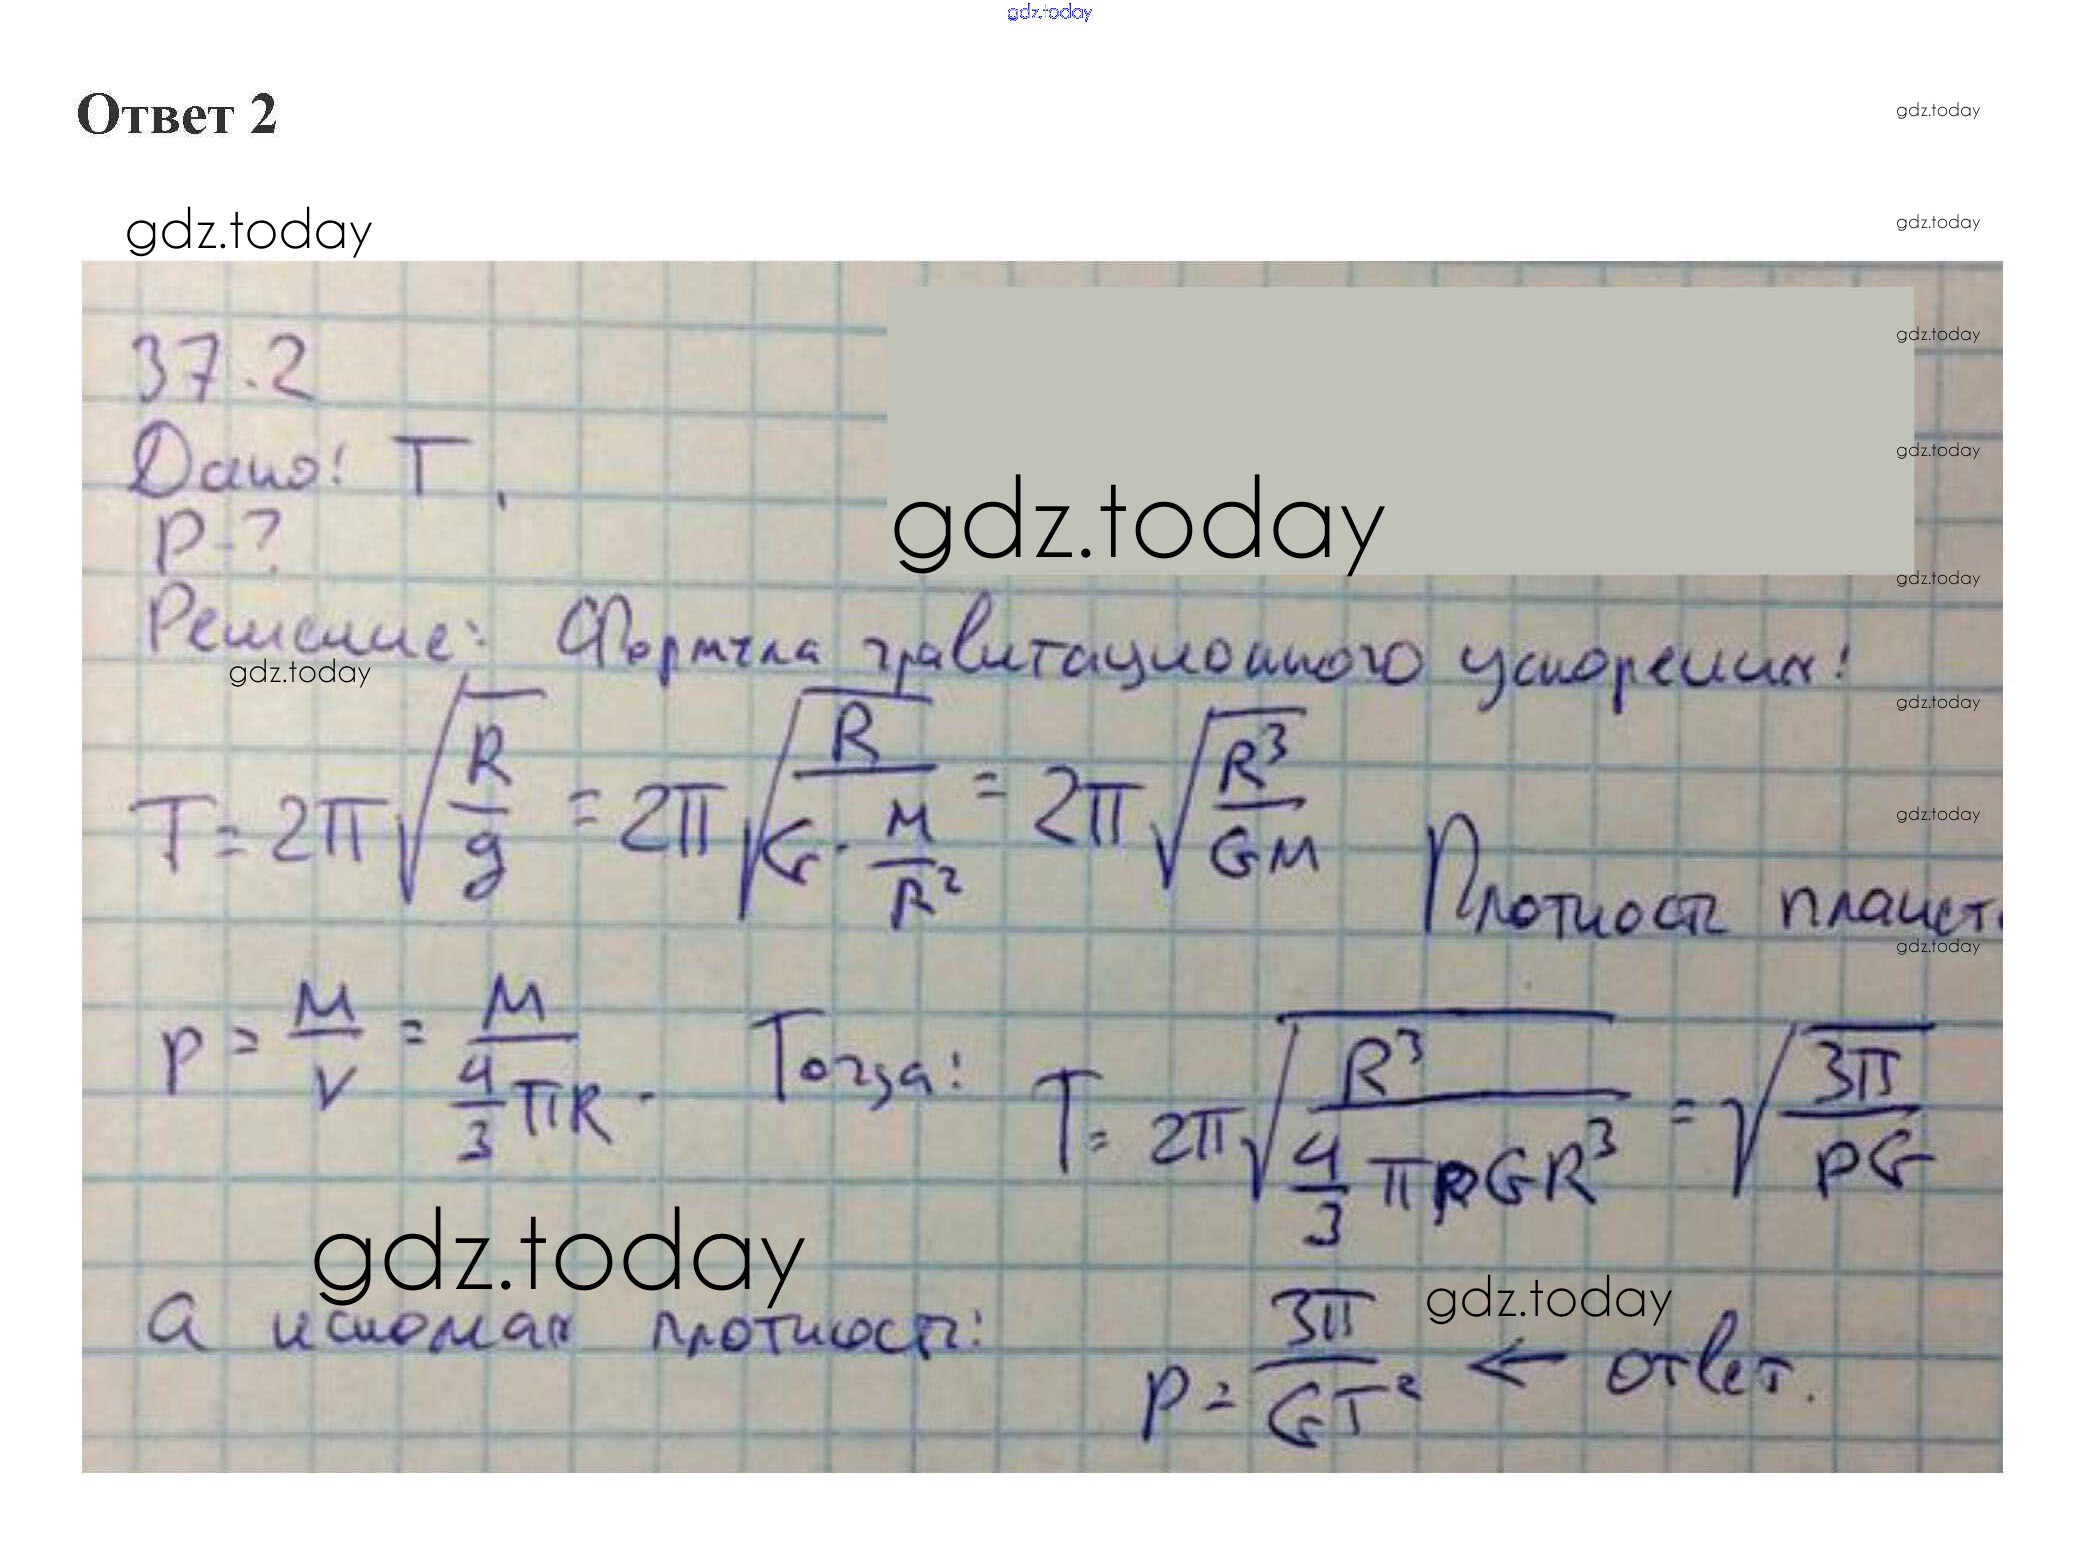 gdz.today
Ответ 2
gdz.today
gdz.today
gdz.today
gdz.today
37.2
gdz.today
Дано: T,
gdz.today
ρ-?
gdz.today
Решение: Формула гравитационного ускорения:
gdz.today
gdz.today
T = 2π√(R/g) = 2π√(R/(G·M/R²)) = 2π√(R³/(GM))
gdz.today
Плотность планет
gdz.today
ρ = M/V = M/(4/3 πR. Тогда: T = 2π√(R³/(4/3 πρGR³)) = √(3π/(ρG))
gdz.today
gdz.today
а искомая плотность: ρ = 3π/(GT²) ← ответ.